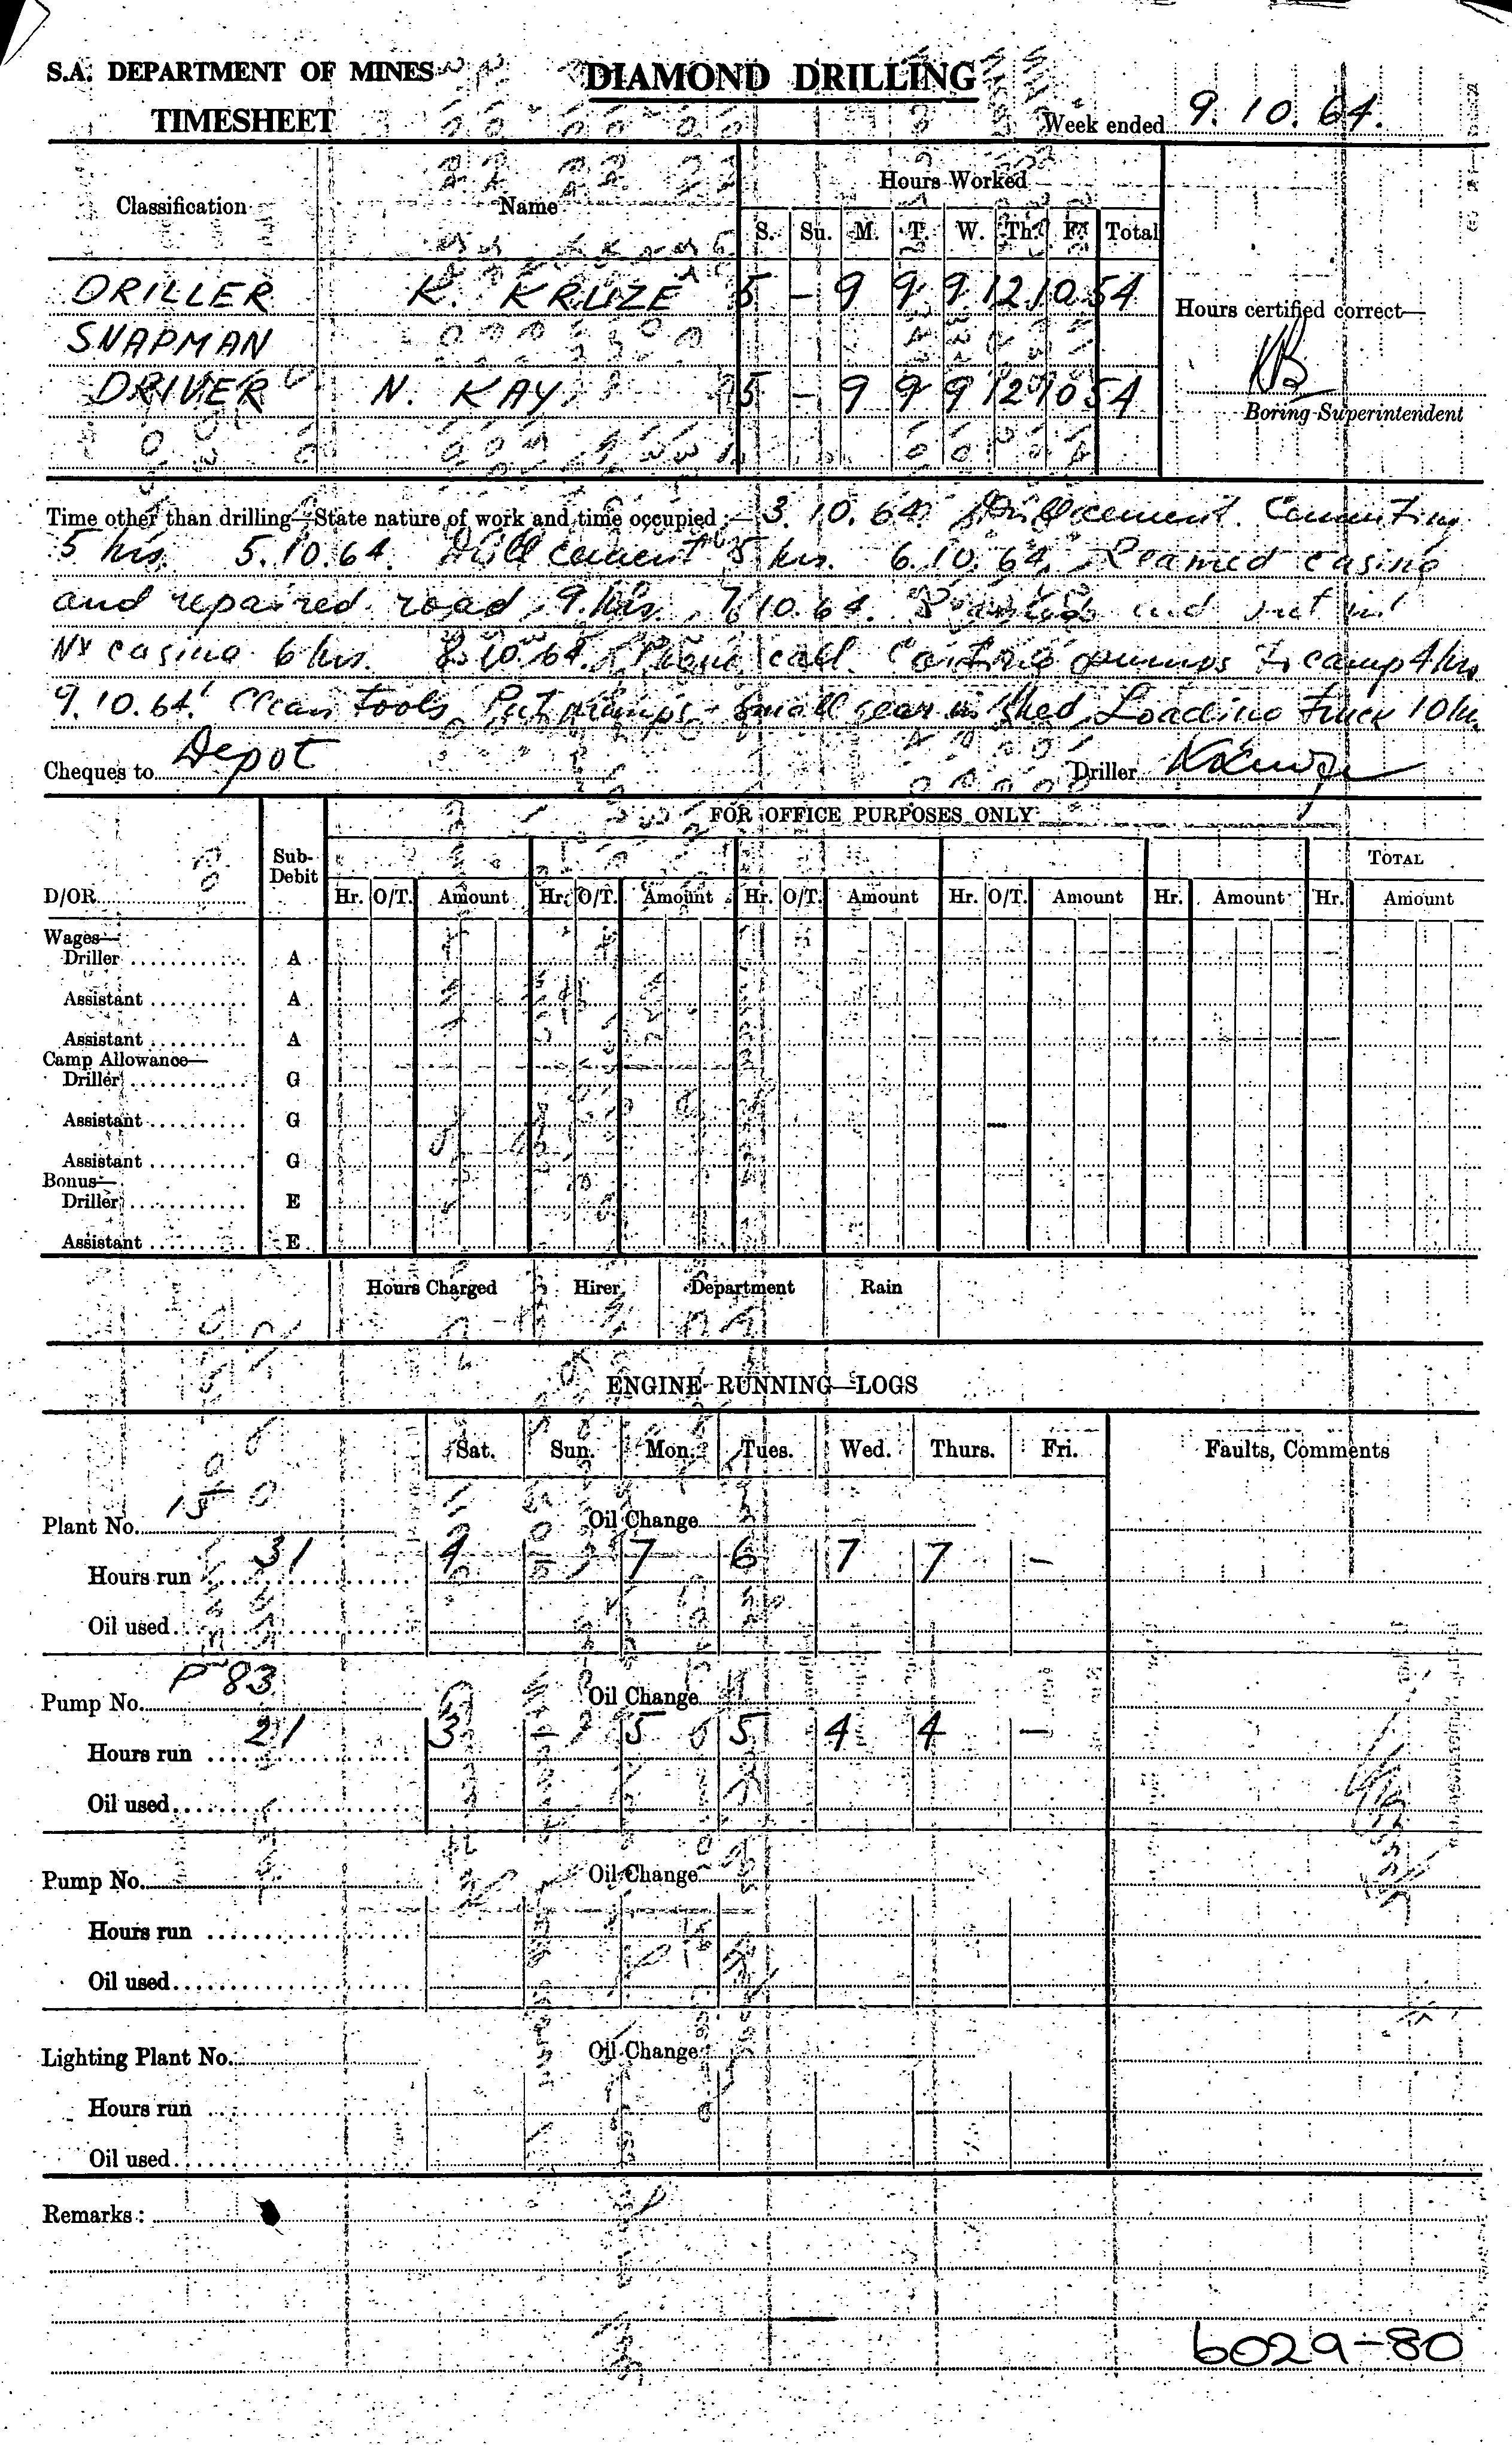 S.A. DEPARTMENT OF MINES DIAMOND DRILLING
TIMESHEET Week ended 9.10.64.
Classification Name Hours Worked
S. Su. M. T. W. Th. F. Total
DRILLER K. KRUZE 5 - 9 9 9 12 10 54
Hours certified correct—
SNAPMAN
DRIVER N. KAY 5 - 9 9 9 12 10 54
Boring Superintendent
Time other than drilling—State nature of work and time occupied:— 3.10.64. Drill cement. Cementing
5 hrs. 5.10.64. Drill cement 5 hrs. 6.10.64. Reamed casing
and repaired road 9 hrs. 7.10.64. and put in
NX casing 6 hrs. 8.10.64. Phone call. Carting pumps to camp 4 hrs
9.10.64. Clean tools Put pumps small gear in shed Loading truck 10 hrs
Cheques to Depot Driller
FOR OFFICE PURPOSES ONLY
Sub-Debit TOTAL
D/OR Hr. O/T. Amount Hr. O/T. Amount Hr. O/T. Amount Hr. O/T. Amount Hr. Amount Hr. Amount
Wages—
Driller A
Assistant A
Assistant A
Camp Allowance—
Driller G
Assistant G
Assistant G
Bonus—
Driller E
Assistant E
Hours Charged Hirer Department Rain
ENGINE RUNNING—LOGS
Sat. Sun. Mon. Tues. Wed. Thurs. Fri. Faults, Comments
Plant No. 15 Oil Change
Hours run 31 4 - 7 6 7 7 -
Oil used
Pump No. P 83 Oil Change
Hours run 21 3 - 5 5 4 4 -
Oil used
Pump No. Oil Change
Hours run
Oil used
Lighting Plant No. Oil Change
Hours run
Oil used
Remarks:
6029-80